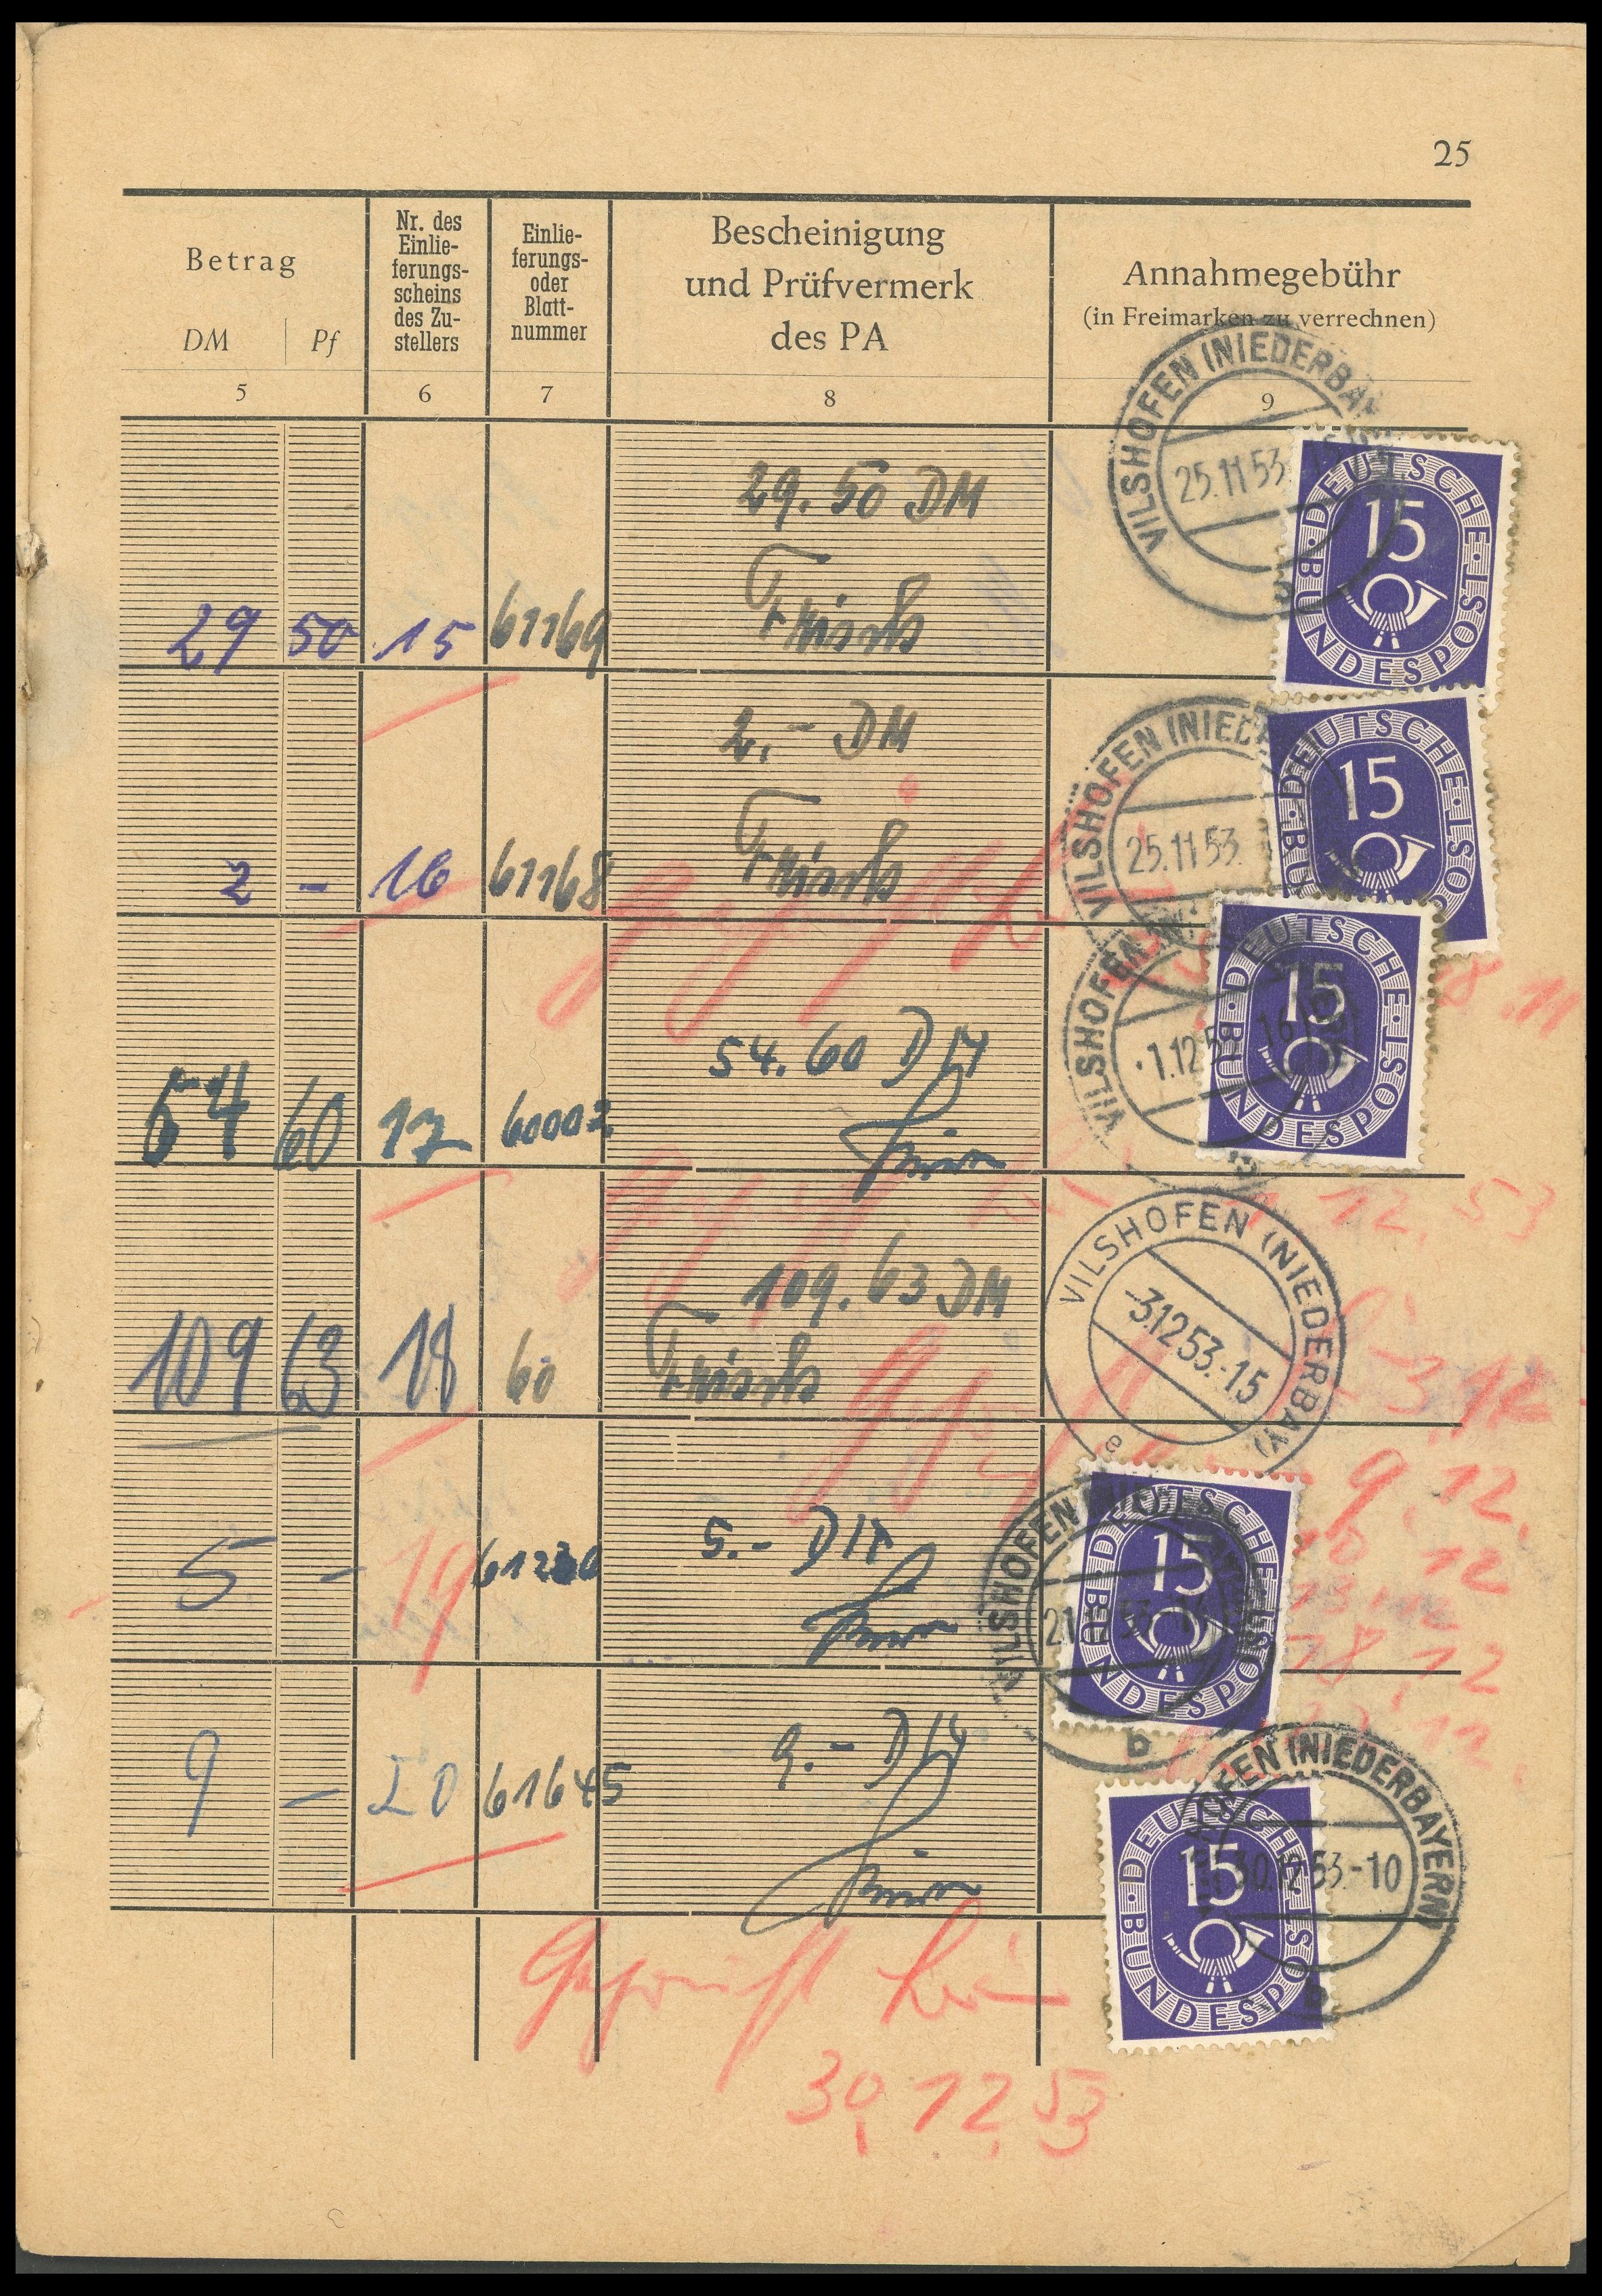 25
Betrag
DM Pf
Nr. des
Einlie-
ferungs-
scheins
des Zu-
stellers
Einlie-
ferungs-
oder
Blatt-
nummer
Bescheinigung
und Prüfvermerk
des PA
Annahmegebühr
(in Freimarken zu verrechnen)
5 6 7 8 9
VILSHOFEN (NIEDERBAY
25.11.53
29.50 DM
29 50 15 61169
DEUTSCHE BUNDESPOST
15
2.- DM
VILSHOFEN (NIED
25.11.53
2 - 16 61168
DEUTSCHE BUNDESPOST
15
28.11
VILSHOFEN
-1.12.53
54.60 DM
54 60 17 60002
DEUTSCHE BUNDESPOST
15
12. 53
VILSHOFEN (NIEDERBAY)
-3.12.53.-15
e
109.63 DM
109 63 18 60
3.12
9.12.
VILSHOFEN
5.- DM
5 - 19 61230
DEUTSCHE BUNDESPOST
15
10 12
18.12
b
9.- DM
9 - 20 61645
OFEN (NIEDERBAYERN)
30.12.53.-10
DEUTSCHE BUNDESPOST
15
Geprüft
30.12.53